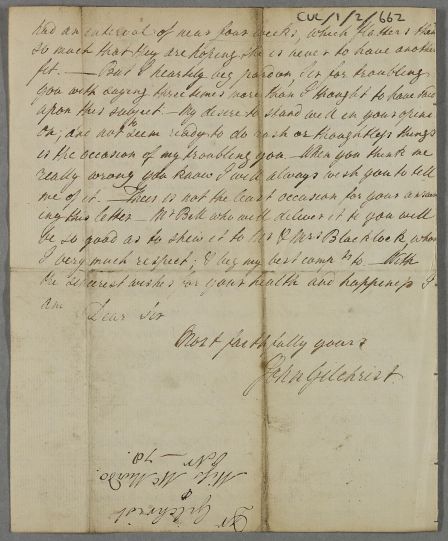 CUL/1/2/662
had an interval of near four weeks, which flatters them
so much that they are hoping she is never to have another
fit. — But I heartily beg pardon, Sir for troubling
you with saying three times more than I thought to have
upon this subject. — My desire to stand well in your opini
on, and not to seem ready to do rash or thoughtless things
is the occasion of my troubling you — When you think me
really wrong you know I will always wish you to tell
me of it. — There is not the least occasion for your answer
ing this letter — Mr Bell who will deliver it to you will
be so good as to shew it to Mr & Mrs Blacklock, whom
I very much respect, & beg my best comp ts to — With
the sincerest wishes for your health and happiness I
am Dear Sir
Most faithfully yours
John Gilchrist
Dr
Gilchrist
Miss McMurdo